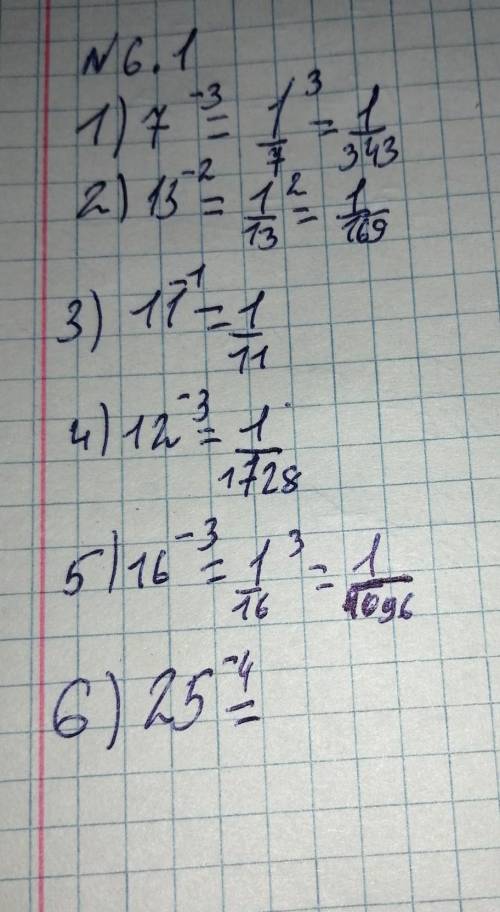 №6.1
1) 7^-3 = 1/7^3 = 1/343
2) 13^-2 = 1/13^2 = 1/169
3) 11^-1 = 1/11
4) 12^-3 = 1/1728
5) 16^-3 = 1/16^3 = 1/4096
6) 25^-4 =